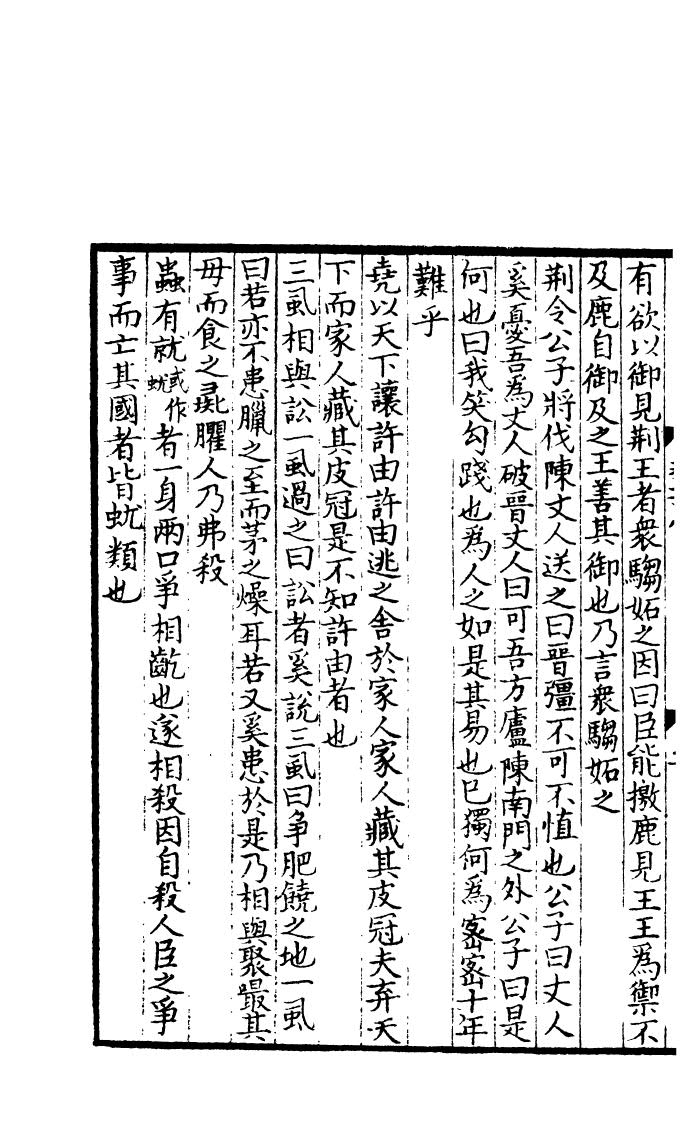 有欲以御見荆王者衆騶妬之因曰臣能撽鹿見王王爲禦不
及鹿自御及之王善其御也乃言衆騶妬之
荆令公子將伐陳丈人送之曰晉彊不可不慎也公子曰丈人
奚憂吾爲丈人破晉丈人曰可吾方廬陳南門之外公子曰是
何也曰我笑勾踐也爲人之如是其易也已獨何爲宻宻十年
難乎
堯以天下讓許由許由逃之舎於家人家人藏其皮冠夫弃天
下而家人藏其皮冠是不知許由者也
三虱相與訟一虱過之曰訟者奚說三虱曰争肥饒之地一虱
曰若亦不患臘之至而茅之燥耳若又奚患於是乃相與聚嘬其
母而食之彘臞人乃弗殺
蟲有就或作蚘者一身兩口爭相齕也遂相殺因自殺人臣之爭
事而亡其國者皆蚘類也